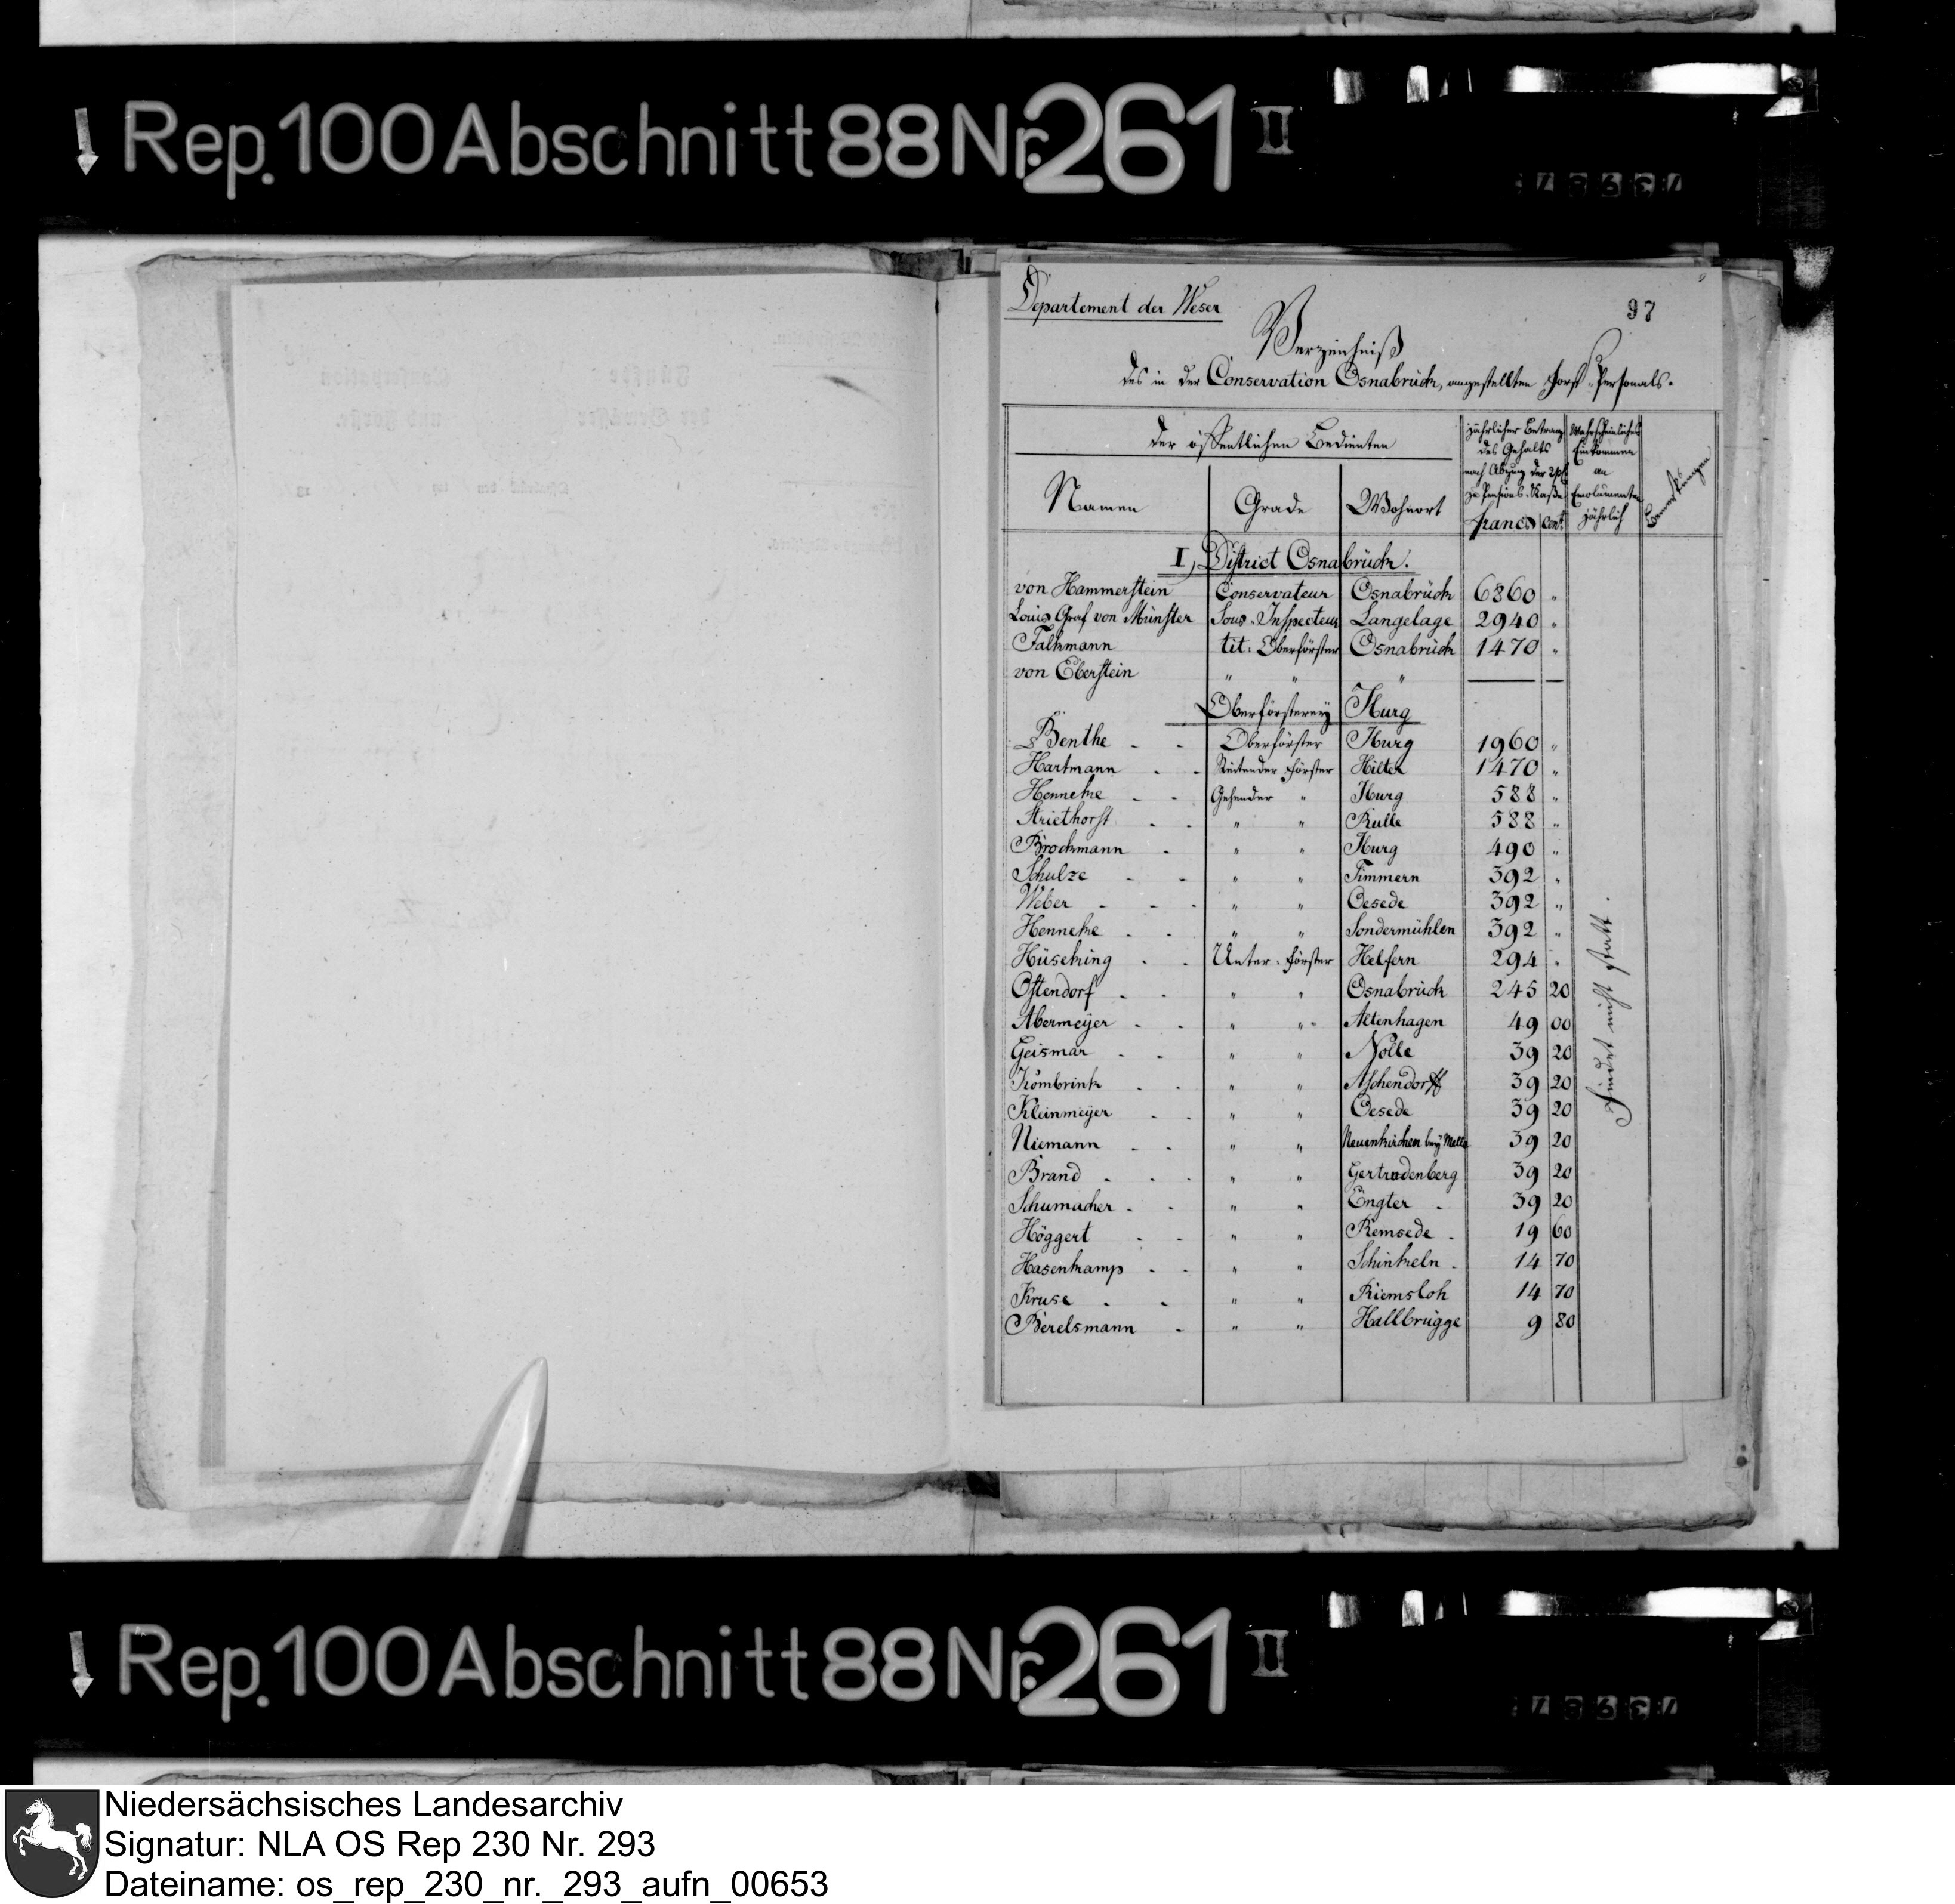 Rep. 100 Abschnitt 88 Nr. 261 II
Departement der Weser
97
Verzeichniß
des in der Conservation Osnabrück, angestellten Forst-Personals.
der öffentlichen Bedienten
jährlicher Betrag des Gehalts nach Abzug der 2 pCt zu Pensions-Kasse
Wahrscheinliches Einkommen an Emolumenten jährlich
Bemerkungen
Namen Grade Wohnort francs cent.
I, District Osnabrück.
von Hammerstein Conservateur Osnabrück 6860 "
Louis Graf von Münster Sous-Inspecteur Langelage 2940 "
Falkmann tit: Oberförster Osnabrück 1470 "
von Eberstein " " " — —
Oberförsterey Iburg
Benthe - - Oberförster Iburg 1960 "
Hartmann - - Reitender Förster Hilter 1470 "
Henneke - - Gehender " Iburg 588 "
Striethorst - - " " Rulle 588 "
Brockmann - " " Iburg 490 "
Schulze - - " " Timmern 392 "
Weber - - - " " Oesede 392 "
Henneke - - " " Sondermühlen 392 "
Hüseking - - Unter-Förster Helfern 294 "
Ostendorf - - " " Osnabrück 245 20
Abermeyer - - " " Altenhagen 49 00
Geismar - - " " Nolle 39 20
Kombrink - - " " Aschendorff 39 20
Kleinmeyer - - " " Oesede 39 20
Niemann - - " " Neuenkirchen bey Melle 39 20
Brand - - - " " Gertrudenberg 39 20
Schumacher - - " " Engter - 39 20
Höggert - - " " Remsede - 19 60
Hasenkamp - - " " Schinkeln - 14 70
Kruse - - " " Riemsloh 14 70
Berelsmann - " " Hallbrügge 9 80
findet nicht statt.
Rep. 100 Abschnitt 88 Nr. 261 II
Niedersächsisches Landesarchiv
Signatur: NLA OS Rep 230 Nr. 293
Dateiname: os_rep_230_nr._293_aufn_00653